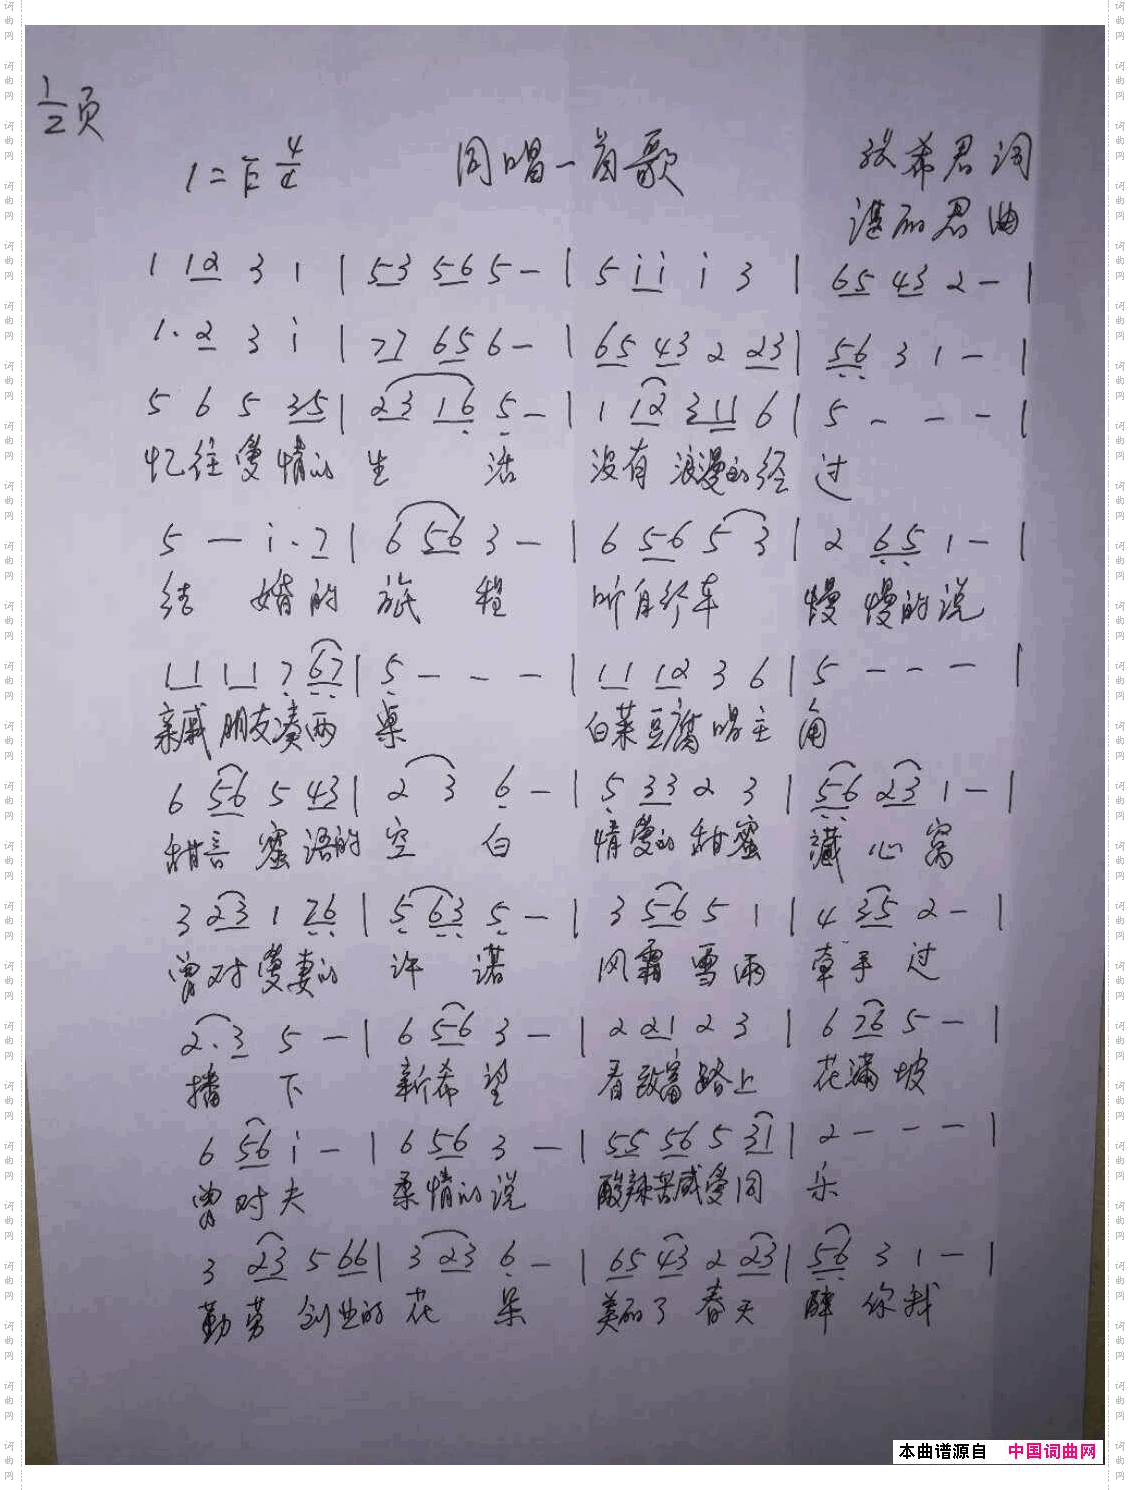 1/2页
1=E 4/4 同唱一首歌 张希君词
湛丽君曲
1 12 3 1 | 53 56 5 - | 5 i i i 3 | 65 43 2 - |
1· 2 3 i | 77 65 6 - | 65 43 2 23 | 56 3 1 - |
5 6 5 35 | 23 16 5 - | 1 12 311 6 | 5 - - - |
忆往爱情的 生 活 没有浪漫的经 过
5 - i· 7 | 6 56 3 - | 6 56 5 3 | 2 65 1 - |
结 婚的 旅 程 听自行车 慢 慢的说
11 11 7 67 | 5 - - - | 11 12 3 6 | 5 - - - |
亲戚 朋友凑两 桌 白菜豆腐唱主 角
6 56 5 43 | 2 3 6 - | 5 33 2 3 | 56 23 1 - |
甜言 蜜语的 空 白 情爱的甜蜜 藏 心 窝
3 23 1 76 | 5 63 5 - | 3 56 5 1 | 4 35 2 - |
曾对爱妻的 许 诺 风霜 雪雨 牵手 过
2· 3 5 - | 6 56 3 - | 2 21 2 3 | 6 76 5 - |
播 下 新希 望 看致富路上 花满 坡
6 56 i - | 6 56 3 - | 55 56 5 31 | 2 - - - |
曾对夫 柔情的说 酸辣苦咸爱同 乐
3 23 5 66 | 3 23 6 - | 65 43 2 23 | 56 3 1 - |
勤劳 创业的 花 朵 美丽了 春天 醉 你我
本曲谱源自 中国词曲网